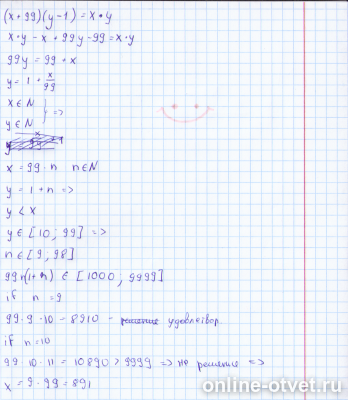 (x+99)(y-1) = x•y
x•y - x + 99y - 99 = x•y
99y = 99 + x
y = 1 + x/99
x ∈ N
y ∈ N } =>
x = 99•n n ∈ N
y = 1 + n =>
y < x
y ∈ [10; 99] =>
n ∈ [9; 98]
99n(1+n) ∈ [1000; 9999]
if n = 9
99•9•10 = 8910 - решение удовлетвор.
if n = 10
99•10•11 = 10890 > 9999 => не решение =>
x = 9•99 = 891
online-otvet.ru